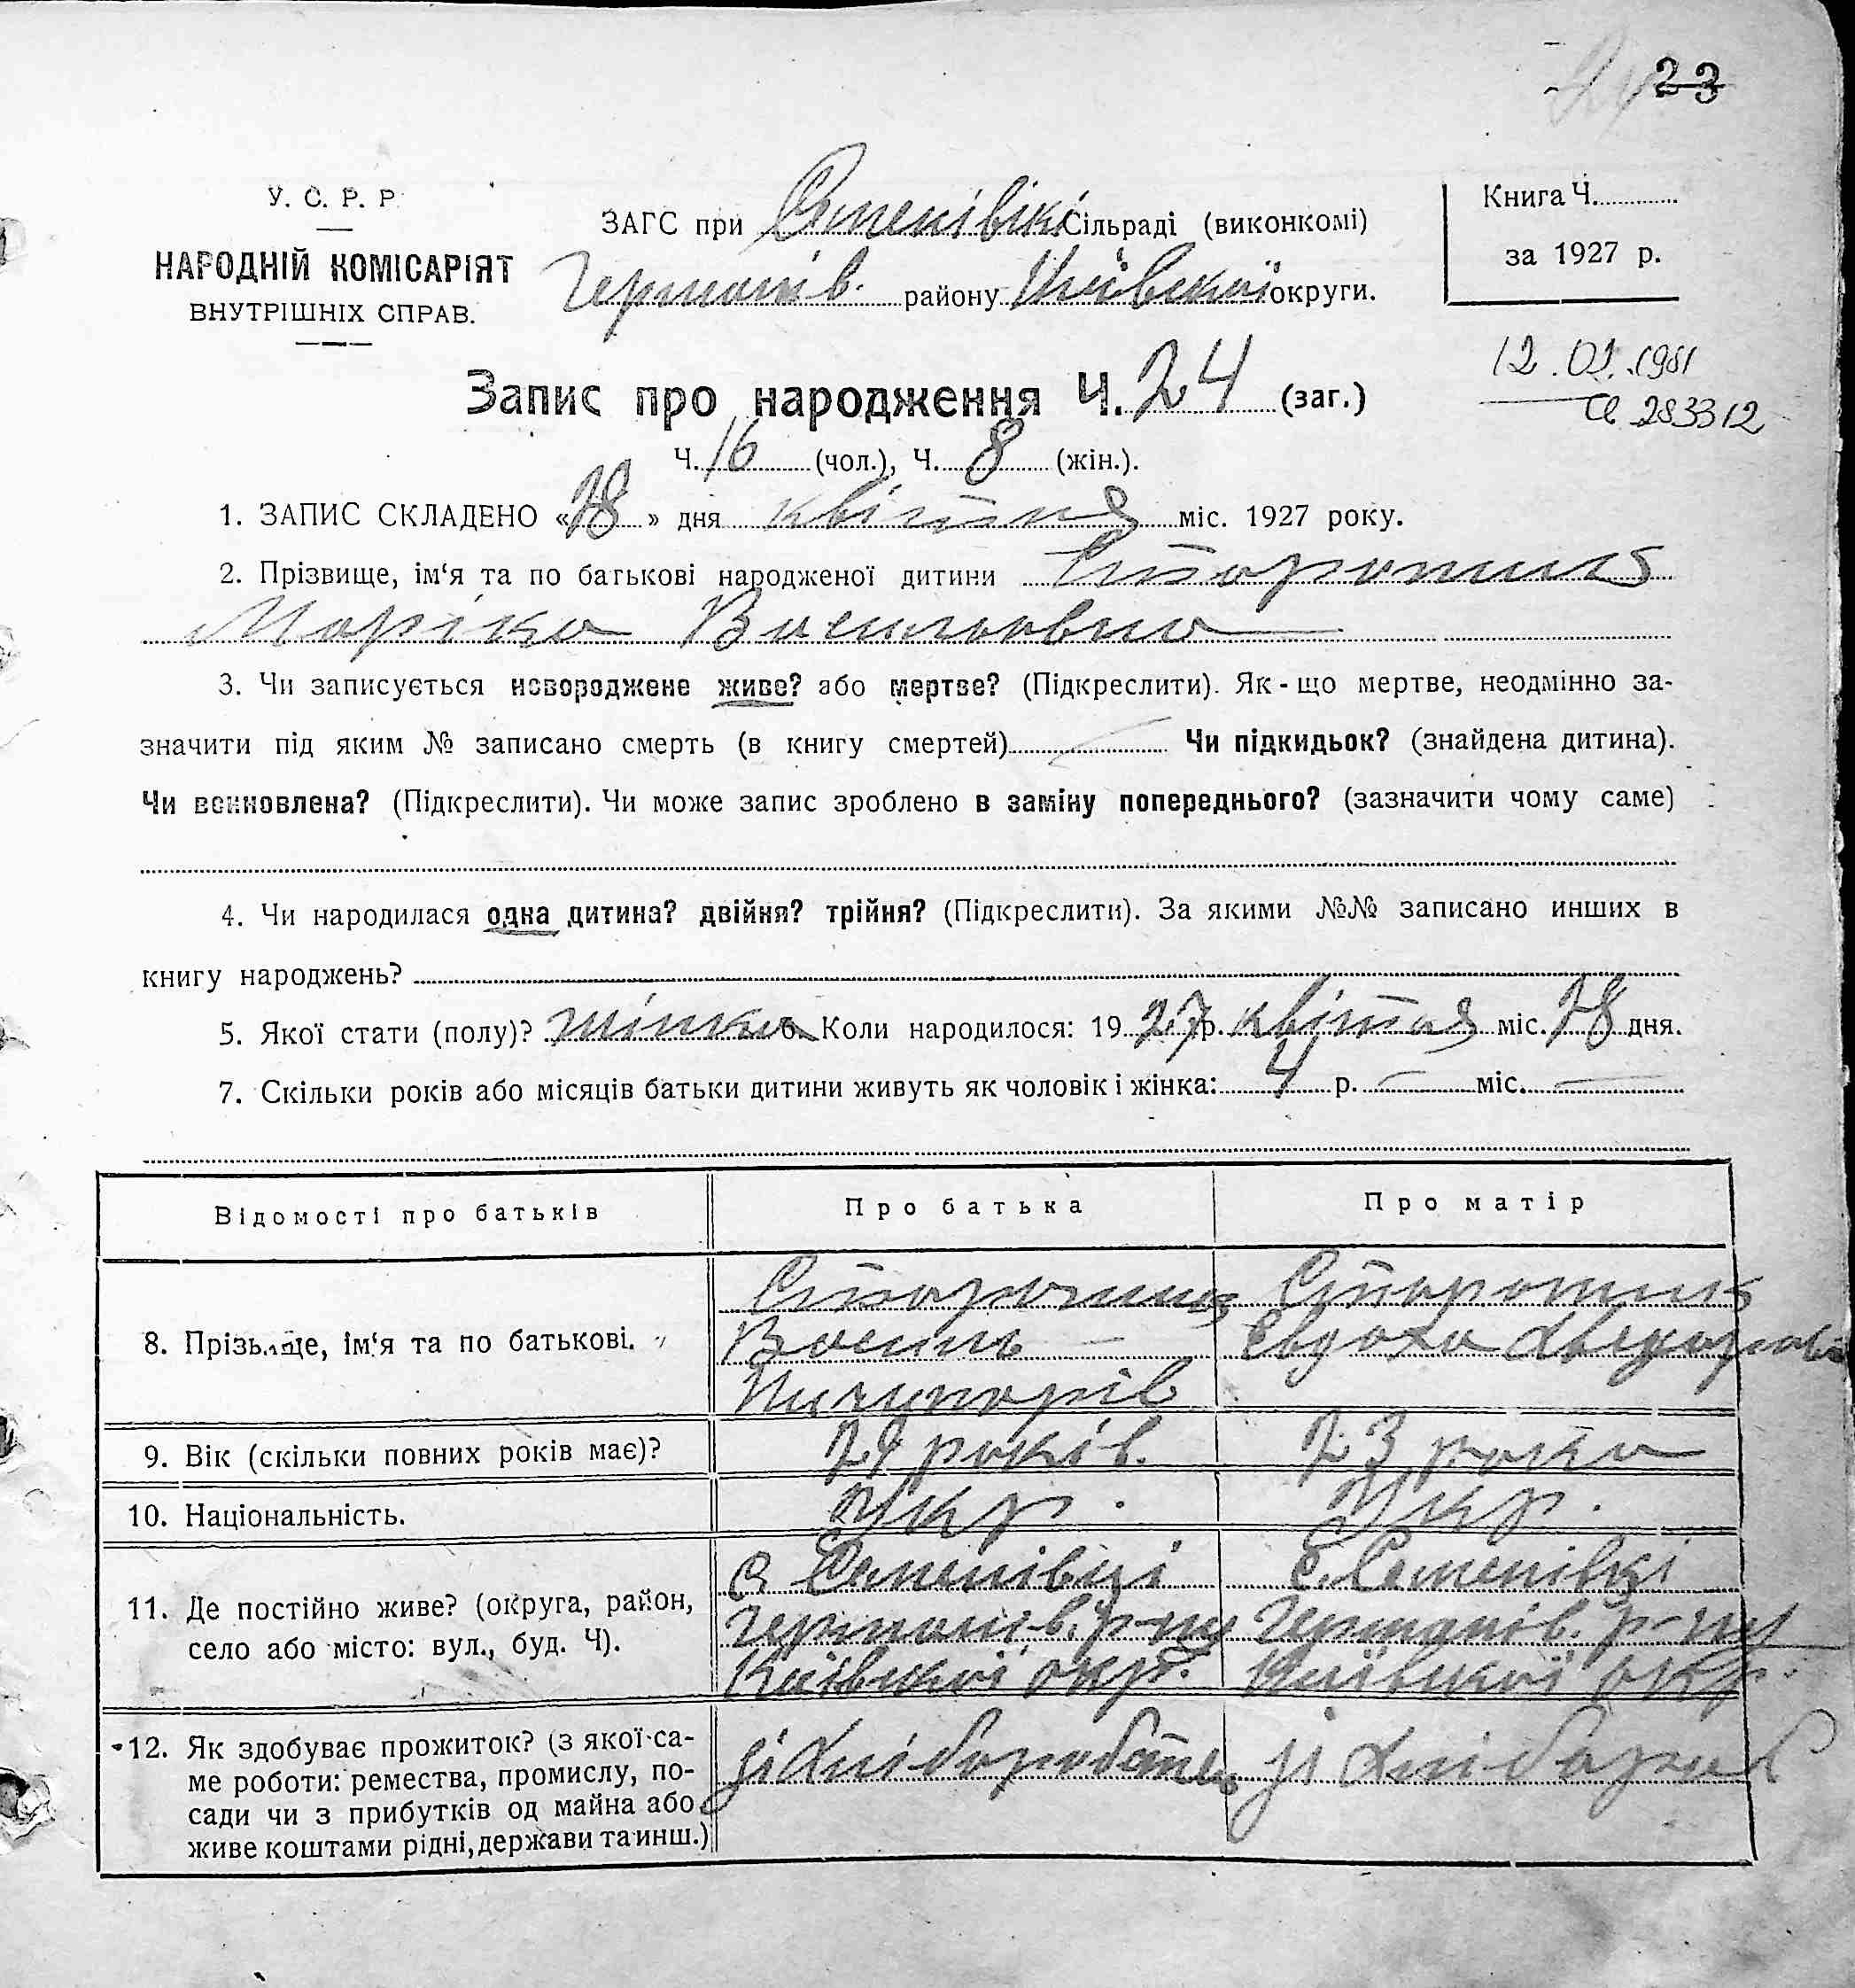 23
У. С. Р. Р
НАРОДНІЙ КОМІСАРІЯТ
ВНУТРІШНІХ СПРАВ.
ЗАГС при Семенівікі Сільраді (виконкомі)
Германів. району Київської округи.
Книга Ч.
за 1927 р.
12.01.1981
283312
Запис про народження Ч. 24 (заг.)
Ч. 16 (чол.), Ч. 8 (жін.).
1. ЗАПИС СКЛАДЕНО «28» дня квітня міс. 1927 року.
2. Прізвище, ім‘я та по батькові народженої дитини
Марійка Васильовна
3. Чи записується новороджене живе? або мертве? (Підкреслити). Як-що мертве, неодмінно за-
значити під яким № записано смерть (в книгу смертей) Чи підкидьок? (знайдена дитина).
Чи всиновлена? (Підкреслити). Чи може запис зроблено в заміну попереднього? (зазначити чому саме)
4. Чи народилася одна дитина? двійня? трійня? (Підкреслити). За якими №№ записано инших в
книгу народжень?
5. Якої стати (полу)? жінка 6. Коли народилося: 1927 р. квітня міс. 28 дня.
7. Скільки років або місяців батьки дитини живуть як чоловік і жінка: 4 р. — міс. —
Відомості про батьків Про батька Про матір
8. Прізвище, ім‘я та по батькові.
Василь Євдоха
Ничипорів
9. Вік (скільки повних років має)? років. 23 роки
10. Національність. Укр. Укр.
11. Де постійно живе? (округа, район,
село або місто: вул., буд. Ч).
с Семенівці с. Семенівці
Германів. р-ну Германів. р-ну
Київської окр. Київської окр.
12. Як здобуває прожиток? (з якої са-
ме роботи: ремества, промислу, по-
сади чи з прибутків од майна або
живе коштами рідні, держави та инш.)